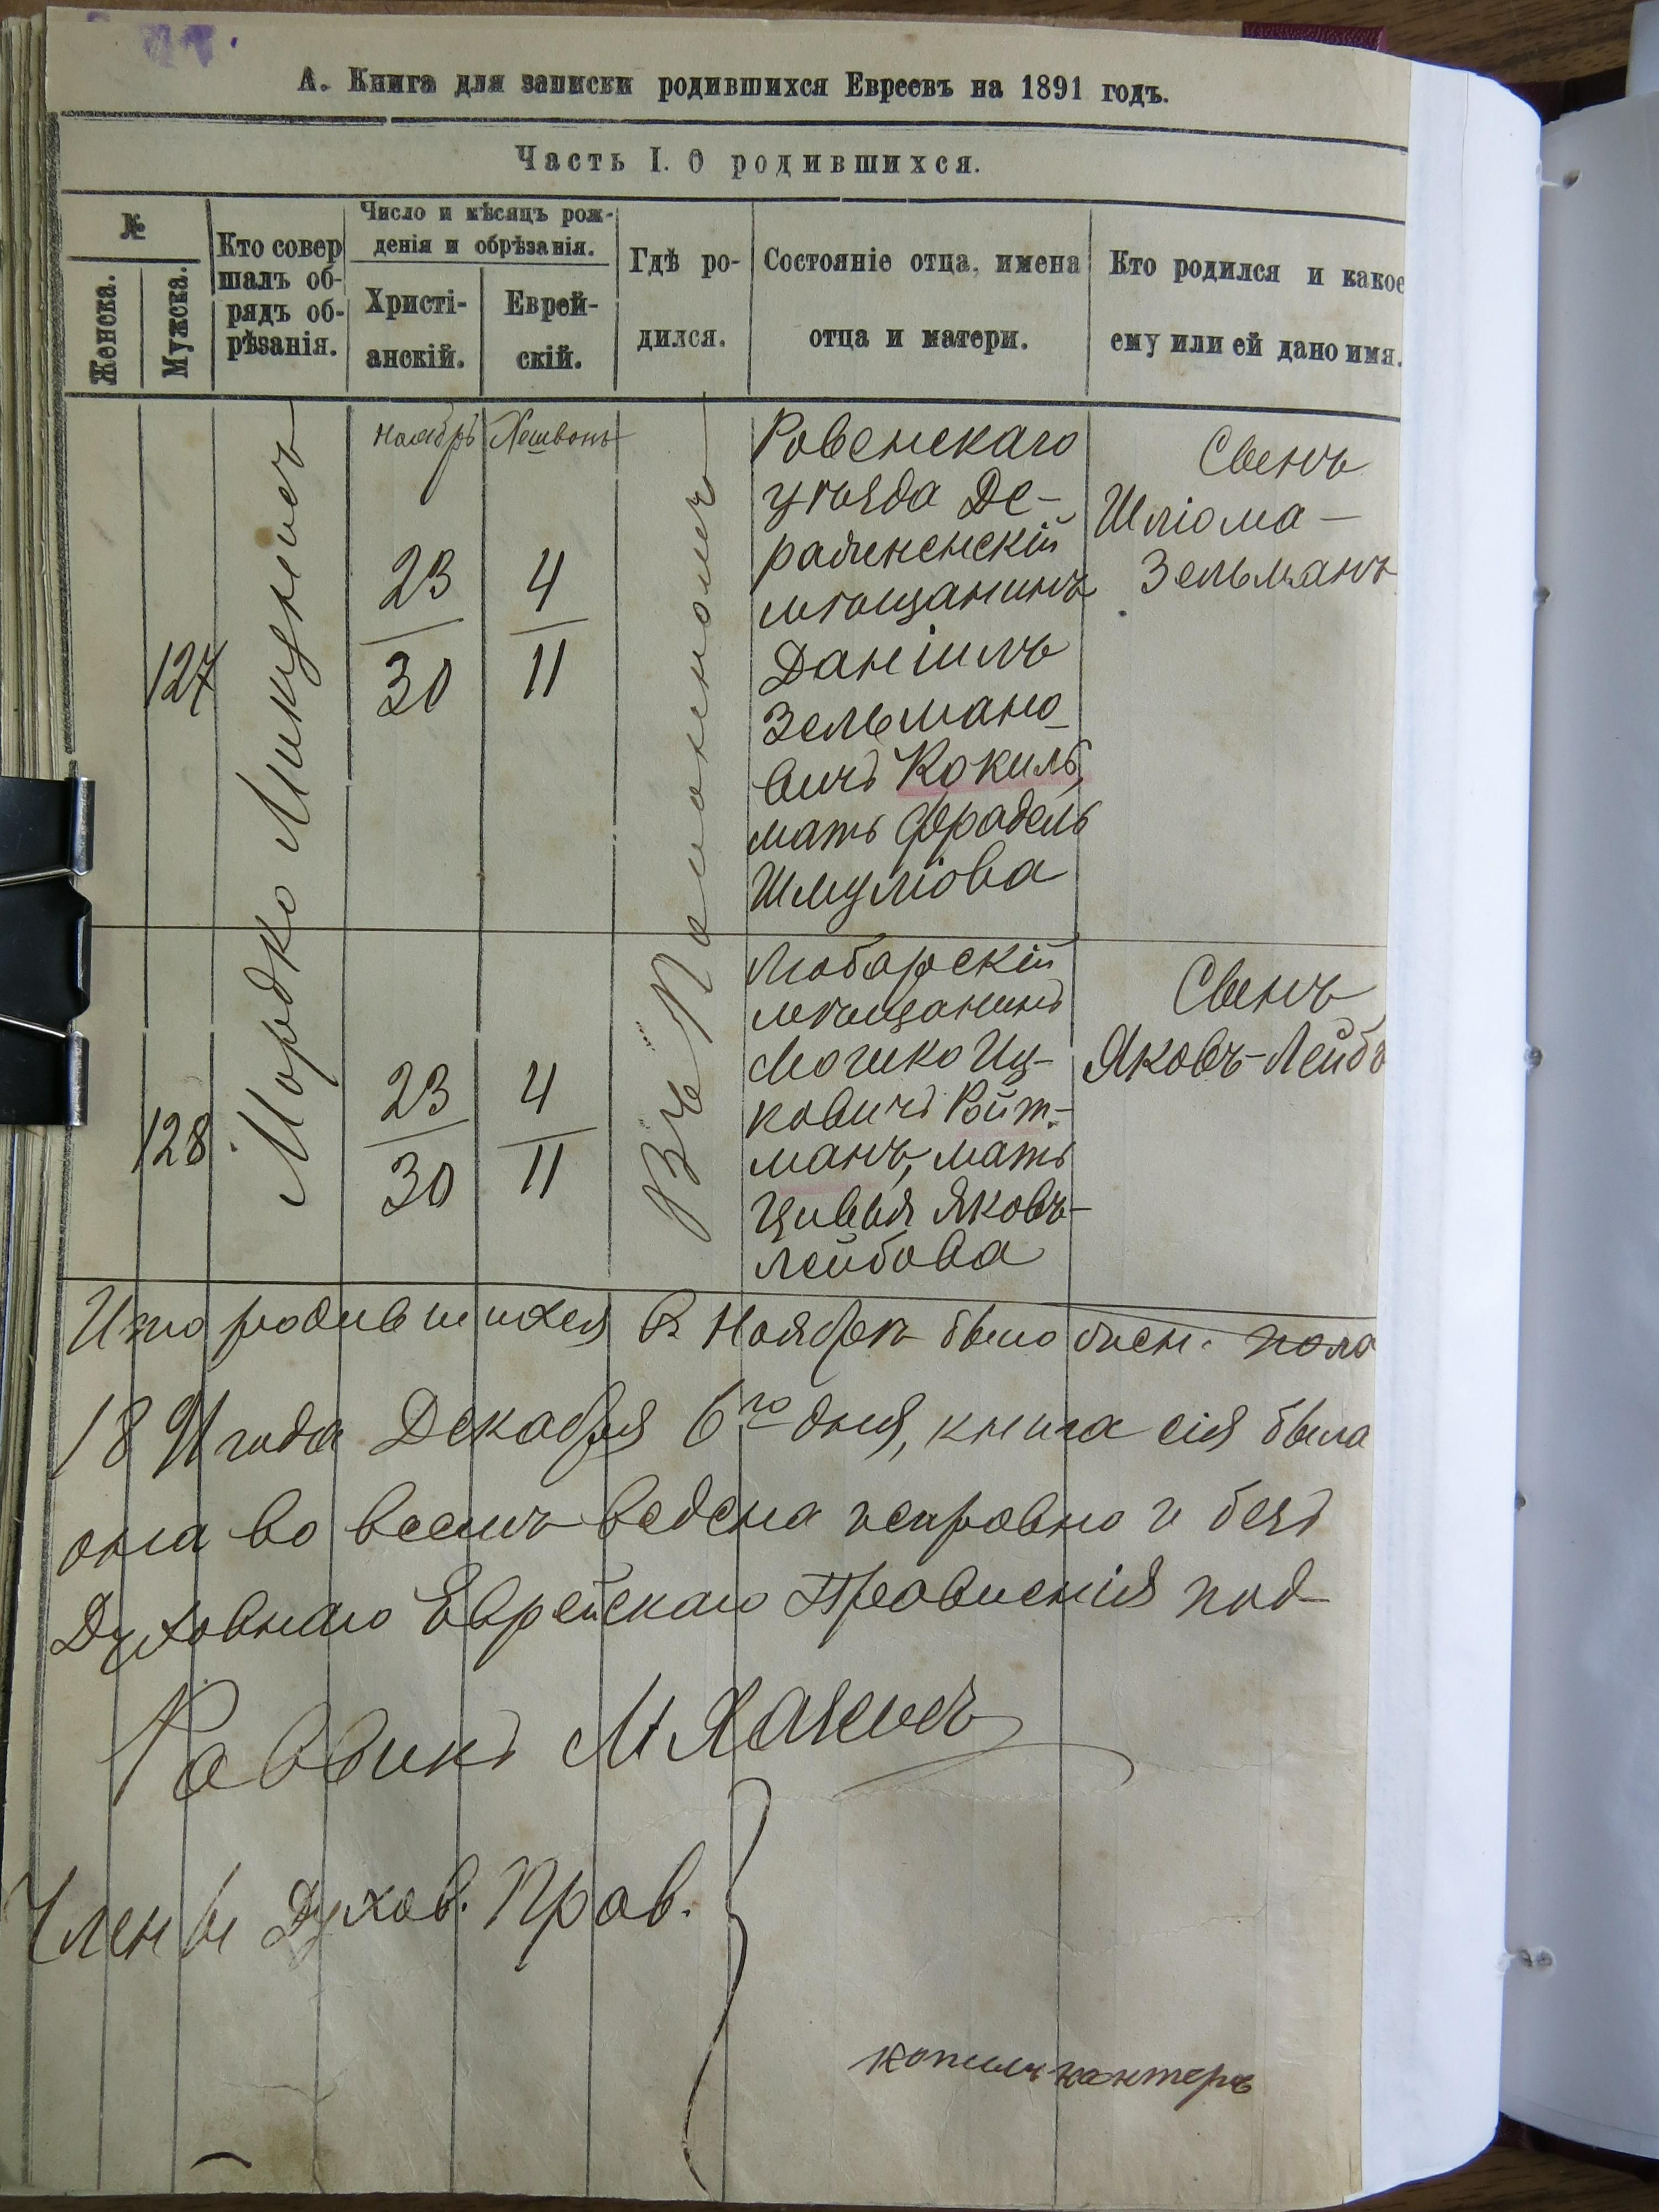 А. Книга для записки родившихся Евреевъ на 1891 годъ.
Часть I. О родившихся.
№
Женска.
Мужска.
Кто совер
шалъ об-
рядъ об-
рѣзанія.
Число и мѣсяцъ рож-
денія и обрѣзанія.
Христі-
анскій.
Еврей-
скій.
Гдѣ ро-
дился.
Состояніе отца, имена
отца и матери.
Кто родился и какое
ему или ей дано имя.
127
Мордко Микунисъ
Ноябрь
23
30
Хешвонъ
4
11
Въ
Ровенскаго
уѣзда Де-
ражненскій
мѣщанинъ
Даніилъ
Зельмано-
вичъ Кокиль,
мать Фрадель
Шмуліова
Свенъ
Шліома-
Зельманъ
128
23
30
4
11
Любарскій
мѣщанинъ
Мошко Иц-
ковичъ Ройт-
манъ, мать
Цивья Яковъ-
Лейбова
Свенъ
Яковъ-Лейбъ
Итого родившихся въ Ноябрѣ было жен. пола
1891 года Декабря 6го дня, книга сія была
она во всемъ ведена исправно и безъ
Духовнаго Еврейскаго Правленія под-
Раввинъ М
Члены Духов. Прав.
кантеръ